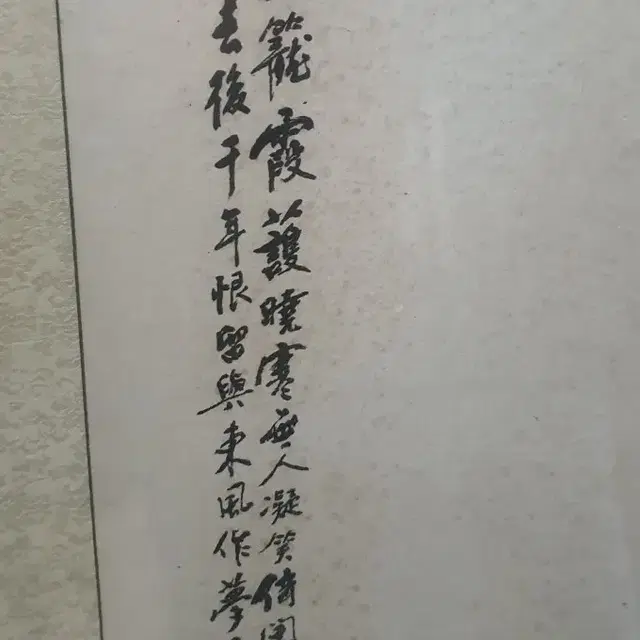 籠霞護曉寒無人凝笑倚
去後千年恨留與東風作夢